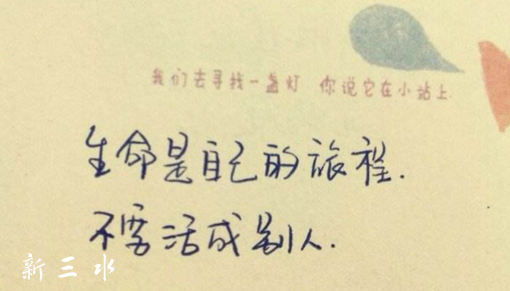 我们去寻找一盏灯 你说它在小站上.
生命是自己的旅程.
不要活成别人.
新三水